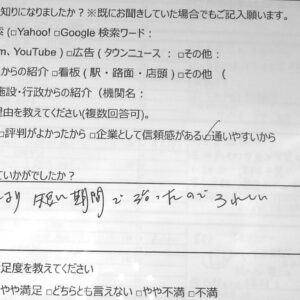 知りになりましたか？※既にお聞きしていた場合でもご記入願います。
索 (□Yahoo! □Google 検索ワード：
m、YouTube ) □広告 ( タウンニュース ： □その他：
からの紹介 □看板 ( 駅・路面・店頭 ) □その他 (
施設・行政からの紹介 ( 機関名：
理由を教えてください(複数回答可)。
□評判がよかったから □企業として信頼感がある □通いやすいから
ていかがでしたか？
より 短い期間で 治ったので うれしい
足度を教えてください
やや満足 □どちらとも言えない □やや不満 □不満